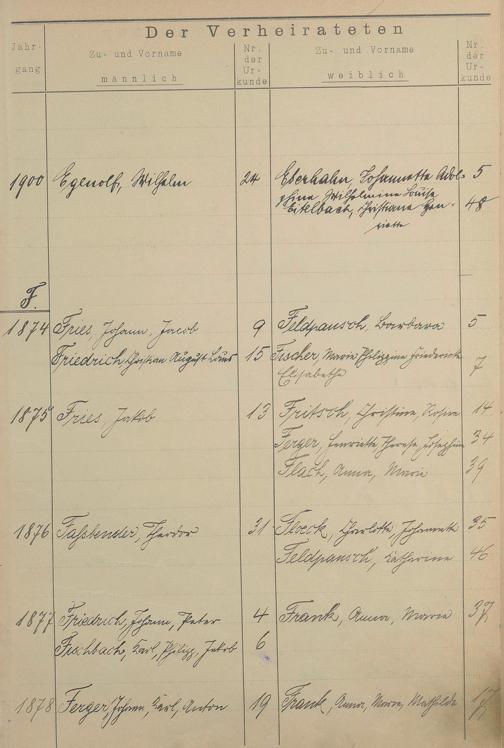 Der Verheirateten
Jahr- Zu- und Vorname Nr. Zu- und Vorname Nr.
gang männlich der weiblich der
Ur- Ur-
kunde kunde
1900 Egenolf, Wilhelm 24 Eberhahn, Johannette Adol- 5
phine Wilhelmine Louise
Eitelbach, Christiane Hen- 48
riette
F.
1874 Fries, Johann, Jacob 9 Feldpausch, Barbara 5
Friedrich, Christian August Louis 15 Fischer, Maria Philippine Friederike 7
Elisabethe
1875 Fries, Jakob 13 Fritsch, Christine, Rosine 14
Ferger, Henriette, Therese, Josephine 34
Flach, Anna, Maria 39
1876 Faßbender, Theodor 31 Floeck, Charlotte, Johannette 35
Feldpausch, Katharina 46
1877 Friedrich, Johann, Peter 4 Frank, Anna, Maria 37
Fischbach, Karl, Philipp, Jakob 6
1878 Ferger, Johann, Karl, Anton 19 Frank, Anna, Maria, Mathilde 17